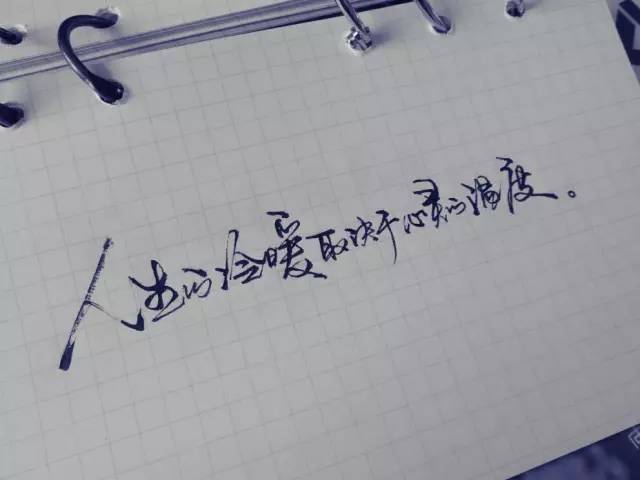 人生的冷暖取决于心灵的温度。